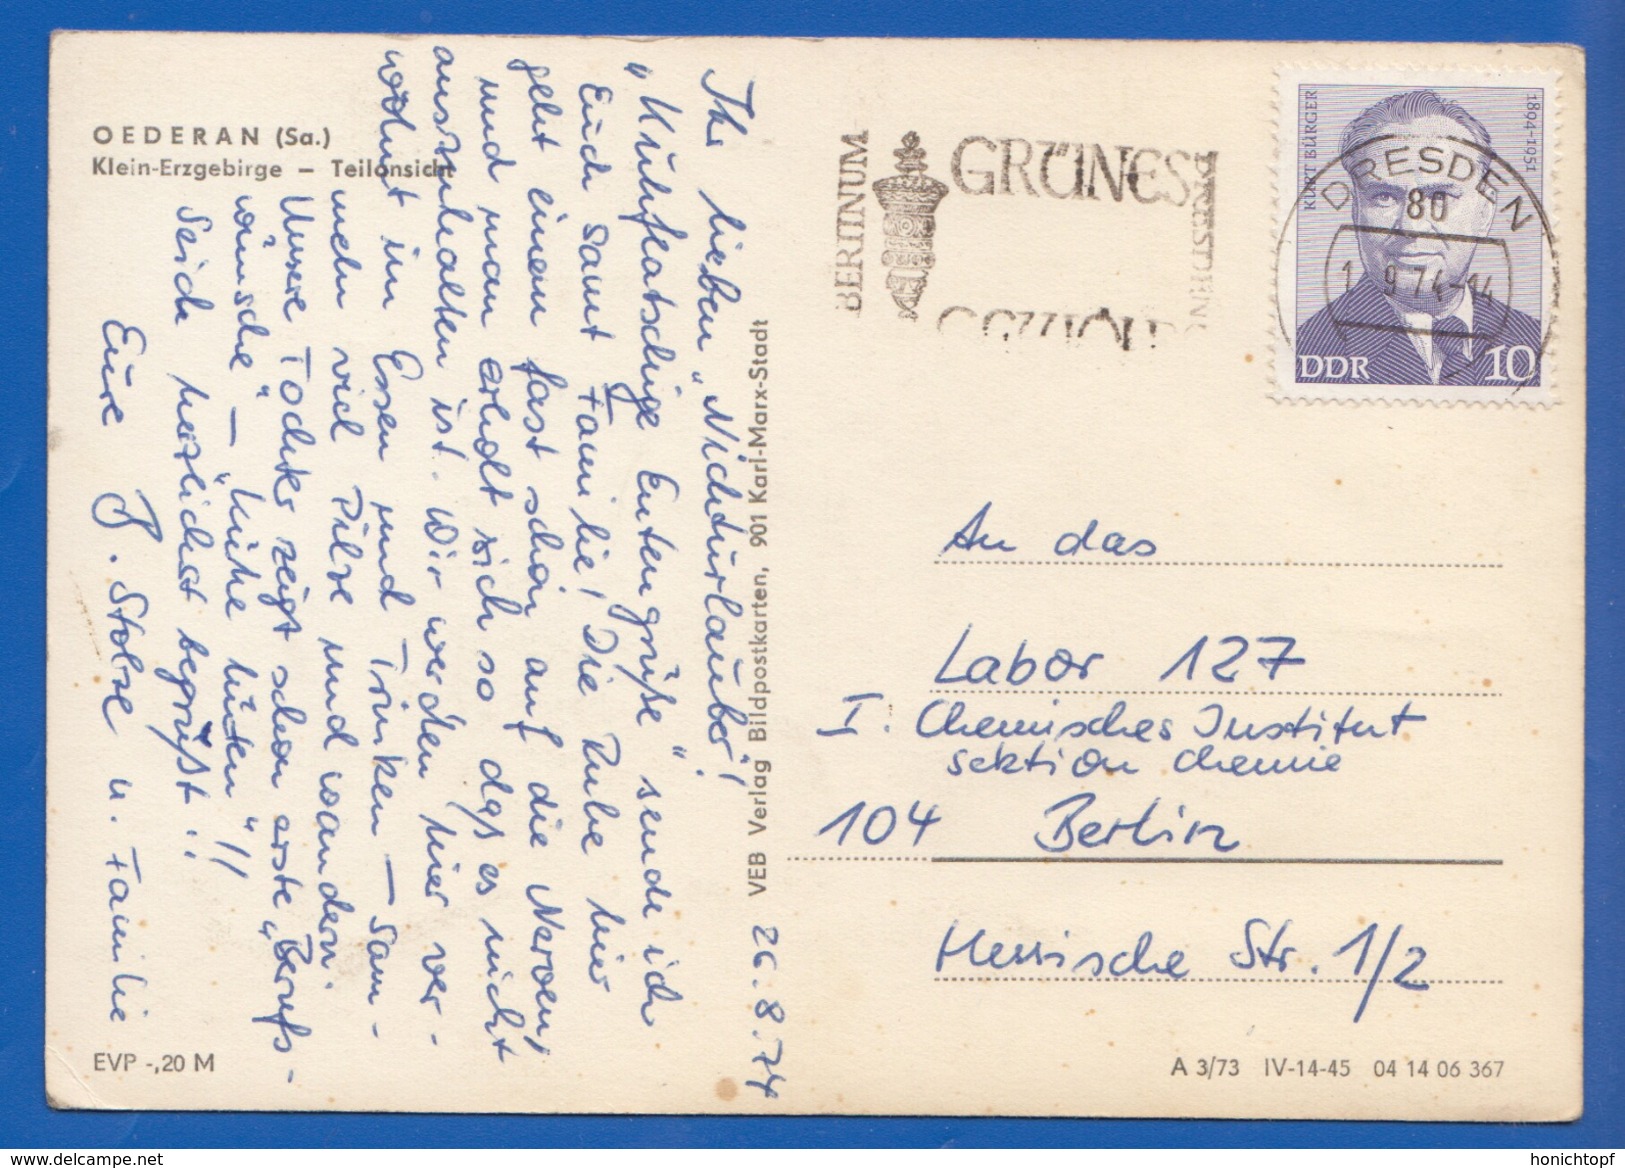 OEDERAN (Sa.)
Klein-Erzgebirge – Teilansicht
26.8.74
Ihr lieben „Nichturlauber!
„Kuhplatschige Entengrüße" sende ich
Euch samt Familie! Die Ruhe hier
geht einem fast schon auf die Nerven,
und man erholt sich so daß es nicht
auszuhalten ist. Wir werden hier ver-
wöhnt im Essen und Trinken – Sam-
meln viel Pilze und wandern.
Unsere Tochter zeigt schon erste „Berufs-
wünsche" – „Kühe hüten"!!
Seid herzlichst begrüßt!
Eure J. Stolze u. Familie
EVP -,20 M
VEB Verlag Bildpostkarten, 901 Karl-Marx-Stadt
BERTINUM
GRÜNES
GEWÖLBE
DRESDEN
KURT BÜRGER
1894-1951
DDR 10
DRESDEN
80
1.9.74-14
An das
Labor 127
I. Chemisches Institut
Sektion Chemie
104 Berlin
Hessische Str. 1/2
A 3/73 IV-14-45 04 14 06 367
delcampe.net
honichtopf